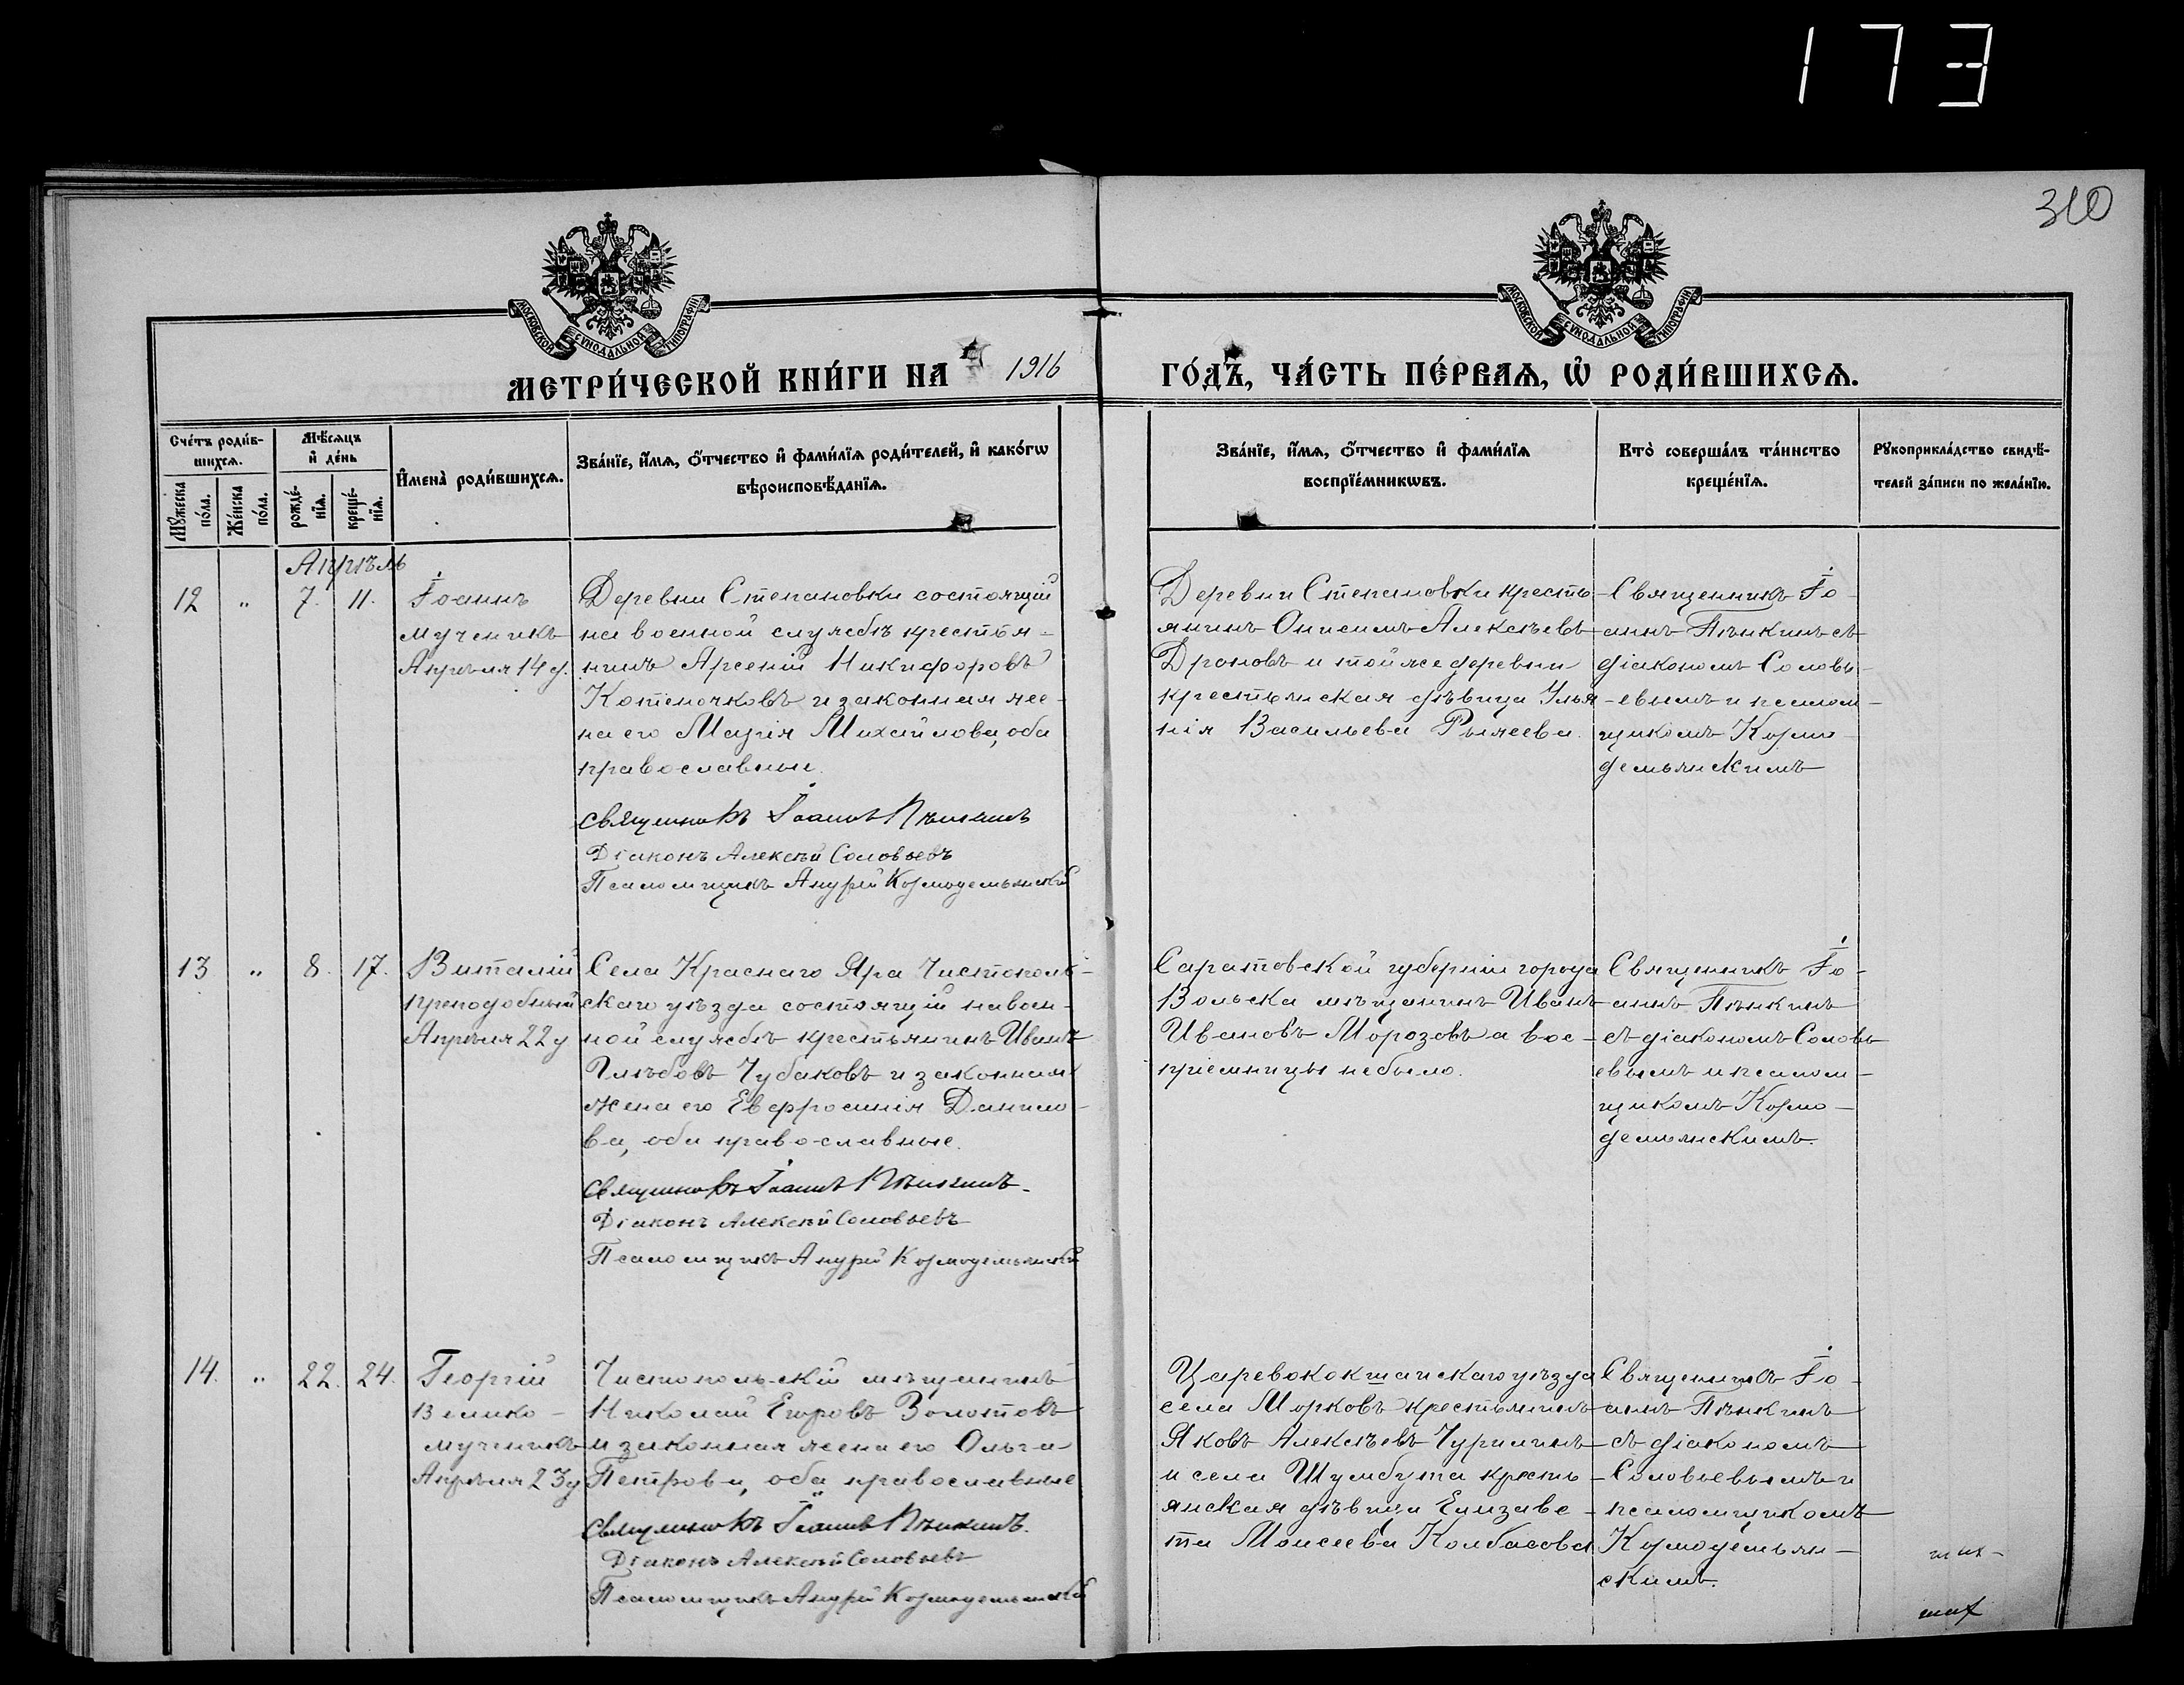 173
310
МОСКОВСКОЙ СѴНОДАЛЬНОЙ ТИПОГРАФІИ
МОСКОВСКОЙ СѴНОДАЛЬНОЙ ТИПОГРАФІИ
МЕТРИ́ЧЕСКОЙ КНИ́ГИ НА 1916 ГО́ДЪ, ЧА́СТЬ ПЕ́РВАѦ, Ѽ РОДИ́ВШИХСѦ.
Сче́тъ роди́в-
шихсѧ.
Мꙋ́жеска по́ла.
Же́нска по́ла.
Мѣ́сѧцъ
и҆ де́нь
рожде́-
нїѧ.
креще́-
нїѧ.
И҆мена̀ роди́вшихсѧ.
Зва́нїе, и҆́мѧ, ѻ҆́тчество и҆ фами́лїѧ роди́телей, и҆ како́гѡ
вѣроисповѣ́данїѧ.
Зва́нїе, и҆́мѧ, ѻ҆́тчество и҆ фами́лїѧ
воспрїе́мникѡвъ.
Кто̀ соверша́лъ та́инство
креще́нїѧ.
Рꙋкоприкла́дство свидѣ́-
телей за́писи по жела́нїю.
Апрѣль
12 " 7. 11.
Іоаннъ
мученикъ
Апрѣля 14 д.
Деревни Степановки состоящій
на военной службѣ крестья-
нинъ Арсеній Никифоровъ
Котеночковъ и законная же-
на его Марія Михайлова, оба
православные.
Священникъ Іоаннъ Пѣнкинъ
Діаконъ Алексѣй Соловьевъ
Псаломщикъ Андрей Козмодемьянскій
Деревни Степановки кресть-
янинъ Онисимъ Алексѣевъ
Дроновъ и той же деревни
крестьянская дѣвица Улья-
нія Васильева Рылеева.
Священникъ Іо-
аннъ Пѣнкинъ съ
діакономъ Соловь-
евымъ и псалом-
щикомъ Козмо-
демьянскимъ
13 " 8. 17.
Виталій
преподобный
Апрѣля 22 д
Села Краснаго Яра Чистополь-
скаго уѣзда состоящій на воен-
ной службѣ крестьянинъ Иванъ
Глѣбовъ Чубаковъ и законная
жена его Евфросинія Данило-
ва, оба православные.
Священникъ Іоаннъ Пѣнкинъ.
Діаконъ Алексѣй Соловьевъ
Псаломщикъ Андрей Козмодемьянскій
Саратовской губерніи города
Вольска мѣщанинъ Иванъ
Ивановъ Морозовъ а вос-
приемницы не было.
Священникъ Іо-
аннъ Пѣнкинъ
съ діакономъ Соловь
евымъ и псалом-
щикомъ Козмо-
демьянскимъ.
14. " 22. 24.
Георгій
Велико-
мученикъ
Апрѣля 23 д
Чистопольскій мѣщанинъ
Николай Егоровъ Золотовъ
и законная жена его Ольга
Петрова, оба православные
Священникъ Іоаннъ Пѣнкинъ.
Діаконъ Алексѣй Соловьевъ
Псаломщикъ Андрей Козмодемьянскій
Царевококшайскаго уѣзда
села Морковъ крестьянинъ
Яковъ Алексѣевъ Чурилинъ
и села Шумбута кресть-
янская дѣвица Елизаве-
та Моисеева Колбасова
Священникъ Іо-
аннъ Пѣнкинъ
съ діакономъ
Соловьевымъ и
псаломщикомъ
Козмодемьян-
скимъ.